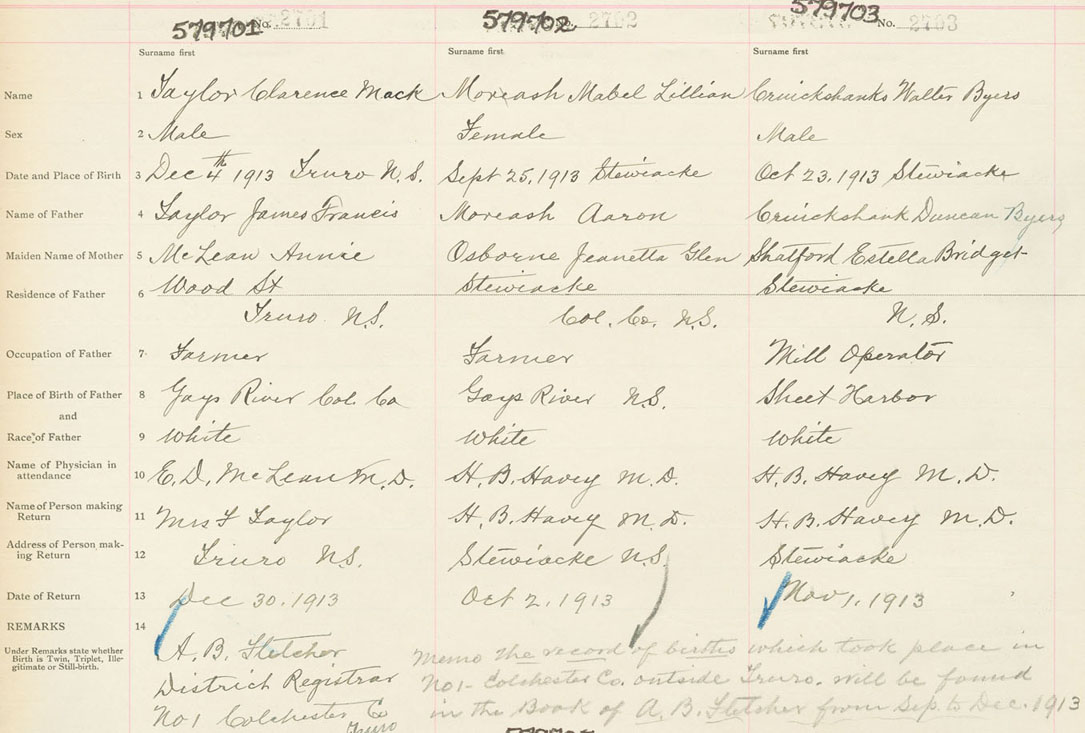 579701 No. 2701 579702 No. 2702 579703 No. 2703
Surname first Surname first Surname first
Name 1 Taylor Clarence Mack Moreash Mabel Lillian Cruickshanks Walter Byers
Sex 2 Male Female Male
Date and Place of Birth 3 Dec 4th 1913 Truro N.S. Sept 25, 1913 Stewiacke Oct 23, 1913 Stewiacke
Name of Father 4 Taylor James Francis Moreash Aaron Cruickshank Duncan Byers
Maiden Name of Mother 5 McLean Annie Osborne Jeanetta Glen Shatford Estella Bridget
Residence of Father 6 Wood St Stewiacke Stewiacke
Truro N.S. Col. Co. N.S. N.S.
Occupation of Father 7 Farmer Farmer Mill Operator
Place of Birth of Father 8 Gays River Col. Co Gays River N.S. Sheet Harbor
and
Race of Father 9 White White White
Name of Physician in attendance 10 E.D. McLean M.D. H.B. Havey M.D. H.B. Havey M.D.
Name of Person making Return 11 Mrs F Taylor H.B. Havey M.D. H.B. Havey M.D.
Address of Person making Return 12 Truro N.S. Stewiacke N.S. Stewiacke
Date of Return 13 Dec 30. 1913 Oct 2, 1913 Nov 1, 1913
REMARKS 14
Under Remarks state whether Birth is Twin, Triplet, Illegitimate or Still-birth.
A. B. Fletcher
District Registrar
No 1 Colchester Co
Truro
Memo the record of births which took place in
No 1- Colchester Co. outside Truro. will be found
in the Book of A. B. Fletcher from Sep. to Dec. 1913